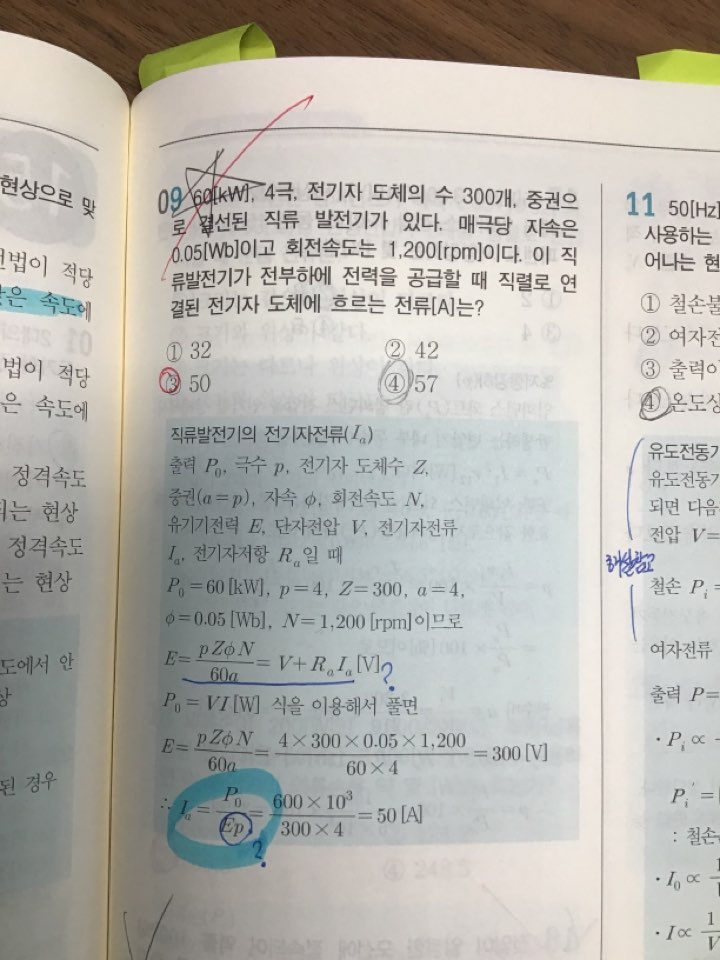 현상으로 맞
법이 적당
은 속도에
법이 적당
은 속도에
정격속도
는 현상
정격속도
는 현상
도에서 안
상
된 경우
09 60[kW], 4극, 전기자 도체의 수 300개, 중권으
로 결선된 직류 발전기가 있다. 매극당 자속은
0.05[Wb]이고 회전속도는 1,200[rpm]이다. 이 직
류발전기가 전부하에 전력을 공급할 때 직렬로 연
결된 전기자 도체에 흐르는 전류[A]는?
① 32 ② 42
③ 50 ④ 57
직류발전기의 전기자전류(Iₐ)
출력 P₀, 극수 p, 전기자 도체수 Z,
중권(a=p), 자속 ϕ, 회전속도 N,
유기기전력 E, 단자전압 V, 전기자전류
Iₐ, 전기자저항 Rₐ일 때
P₀=60[kW], p=4, Z=300, a=4,
ϕ=0.05[Wb], N=1,200[rpm]이므로
E=pZϕN/60a=V+RₐIₐ[V] ?
P₀=VI[W] 식을 이용해서 풀면
E=pZϕN/60a=4×300×0.05×1,200/60×4=300[V]
∴ Iₐ=P₀/Ep=600×10³/300×4=50[A]
?
11 50[Hz]
사용하는
어나는 현
① 철손불
② 여자전
③ 출력이
④ 온도상
유도전동기
유도전동기
되면 다음
전압 V=
해설참고
철손 Pᵢ=
여자전류
출력 P=
· Pᵢ ∝
Pᵢ′=
: 철손
· I₀ ∝ 1
· I ∝ 1/V